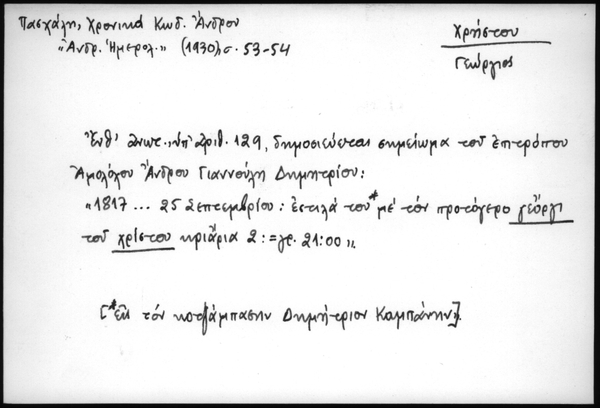 Πασχάλη, Χρονικά Κωδ. Ἄνδρου
"Ἀνδρ. Ἡμερολ." (1930), σ. 53-54
Χρήστου
Γεώργιος
Ἔνθ' ἀνωτ., ὑπ' ἀριθ. 129, δημοσιεύεται σημείωμα τοῦ ἐπιτρόπου
Ἀμολόχου Ἄνδρου Γιαννούλη Δημητρίου:
"1817 ... 25 Σεπτεμβρίου: ἐστιλά του* μέ τόν προτόγερο γεὤργι
τοῦ χρίστου κριάρια 2:=γρ. 21:00".
[*εἰς τόν κοτζάμπασην Δημήτριον Καμπάνην].